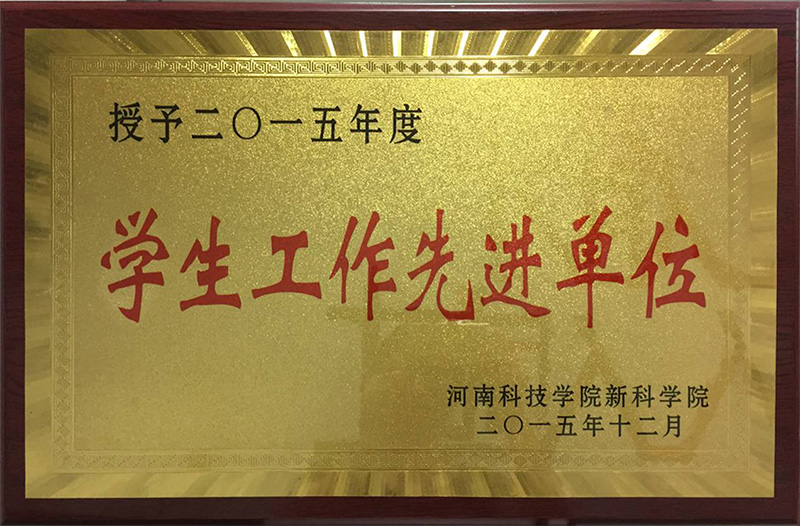 授予二〇一五年度
学生工作先进单位
河南科技学院新科学院
二〇一五年十二月